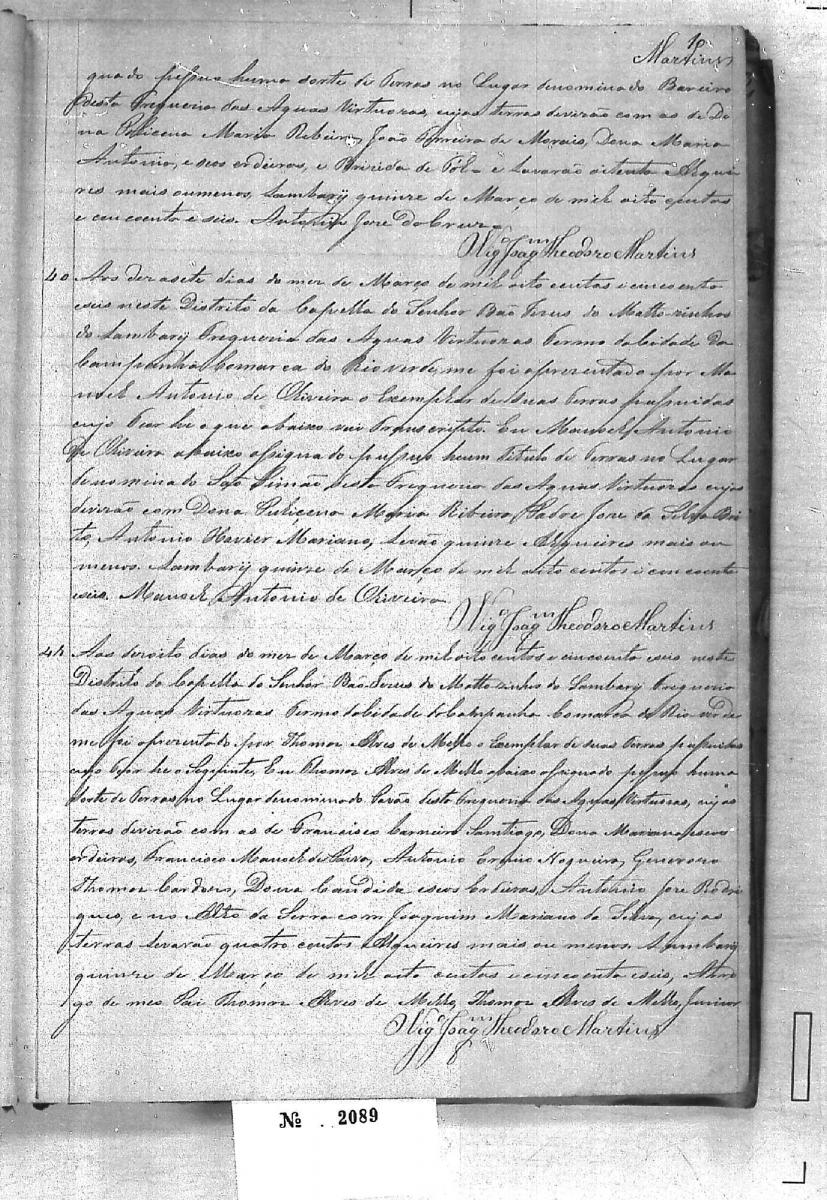 10
Martins
gnado possuo huma sorte de Terras no Lugar denominado Bareiro
desta Fregueria das Aguas Virtuozas, cujas terras devizão com as de Do
na Policena Maria Ribeiro, João Ferreira de Morais, Dona Maria
Antonia, e seos erdeiros, e Brizida de Tól e Levarão oitenta Alquei
res mais oumenos, Lambary quinze de Março de mil oito centos
e cincoenta e seis. Antonio Jose da Cruz
Vigº Joaqm Theodoro Martins
40 Aos dezasete dias do mez de Março de mil oito centos e cincoenta
eseis neste Distrito da Capella do Senhor Bão Jezus do Mattozinhos
do Lambary Fregueria das Aguas Virtuozas Termo da Cidade da
Campanha Comarca do Rio verde, me foi aprezentado por Ma
noel Antonio de Oliveira o Exemplar de suas Terras possuidas
cujo Tear he o que abaixo vai Transcripto. Eu Manoel Antonio
de Oliveira abaixo assignado possuo hum titulo de Terras no Lugar
denominado São Simão desta Fregueria das Aguas Virtuozas cujas
devizão com Dona Puliçena Maria Ribeiro, Padre Joze da Silva Bri
to, Antonio Xavier Mariano, Levão quinze Alqueires mais ou
menos. Lambary quinze de Março de mil oito centos e cincoenta
eseis. Manoel Antonio de Oliveira
Vigº Joaqm Theodoro Martins
41 Aos dezoito dias do mez de Março de mil oito centos e cincoenta eseis neste
Distrito da Capella do Senhor Bão Jezus do Mattozinhos do Lambary Fregueria
das Aguas Virtuozas Termo da Cidade da Campanha Comarca do Rio verde
me foi aprezentado por Thomaz Alves de Mello o Exemplar de suas Terras possuidas
cujo Tear he o Seguinte, Eu Thomaz Alves de Mello abaixo assignado possuo huma
sorte de Terras no Lugar denominado Cavão desta Fregueria das Aguas Virtuozas, cujas
terras devizão com as de Francisco Carneiro Santiago, Dona Mariana eseos
erdeiros, Francisco Manoel de Paiva, Antonio Nogueira, Generozo
Thomaz Cardozo, Dona Candida eseos Erdeiros, Antonio Joze Rodri
gues, e no Alto da Serra com Joaquim Mariano da Silva, cujas
terras Levarão quatro centos Alqueires mais ou menos. Lambary
quinze de Março de mil oito centos e cincoenta eseis, Aro
go de meo Pai Thomaz Alves de Mello, Thomaz Alves de Mello Junior
Vigº Joaqm Theodoro Martins
Nº 2089